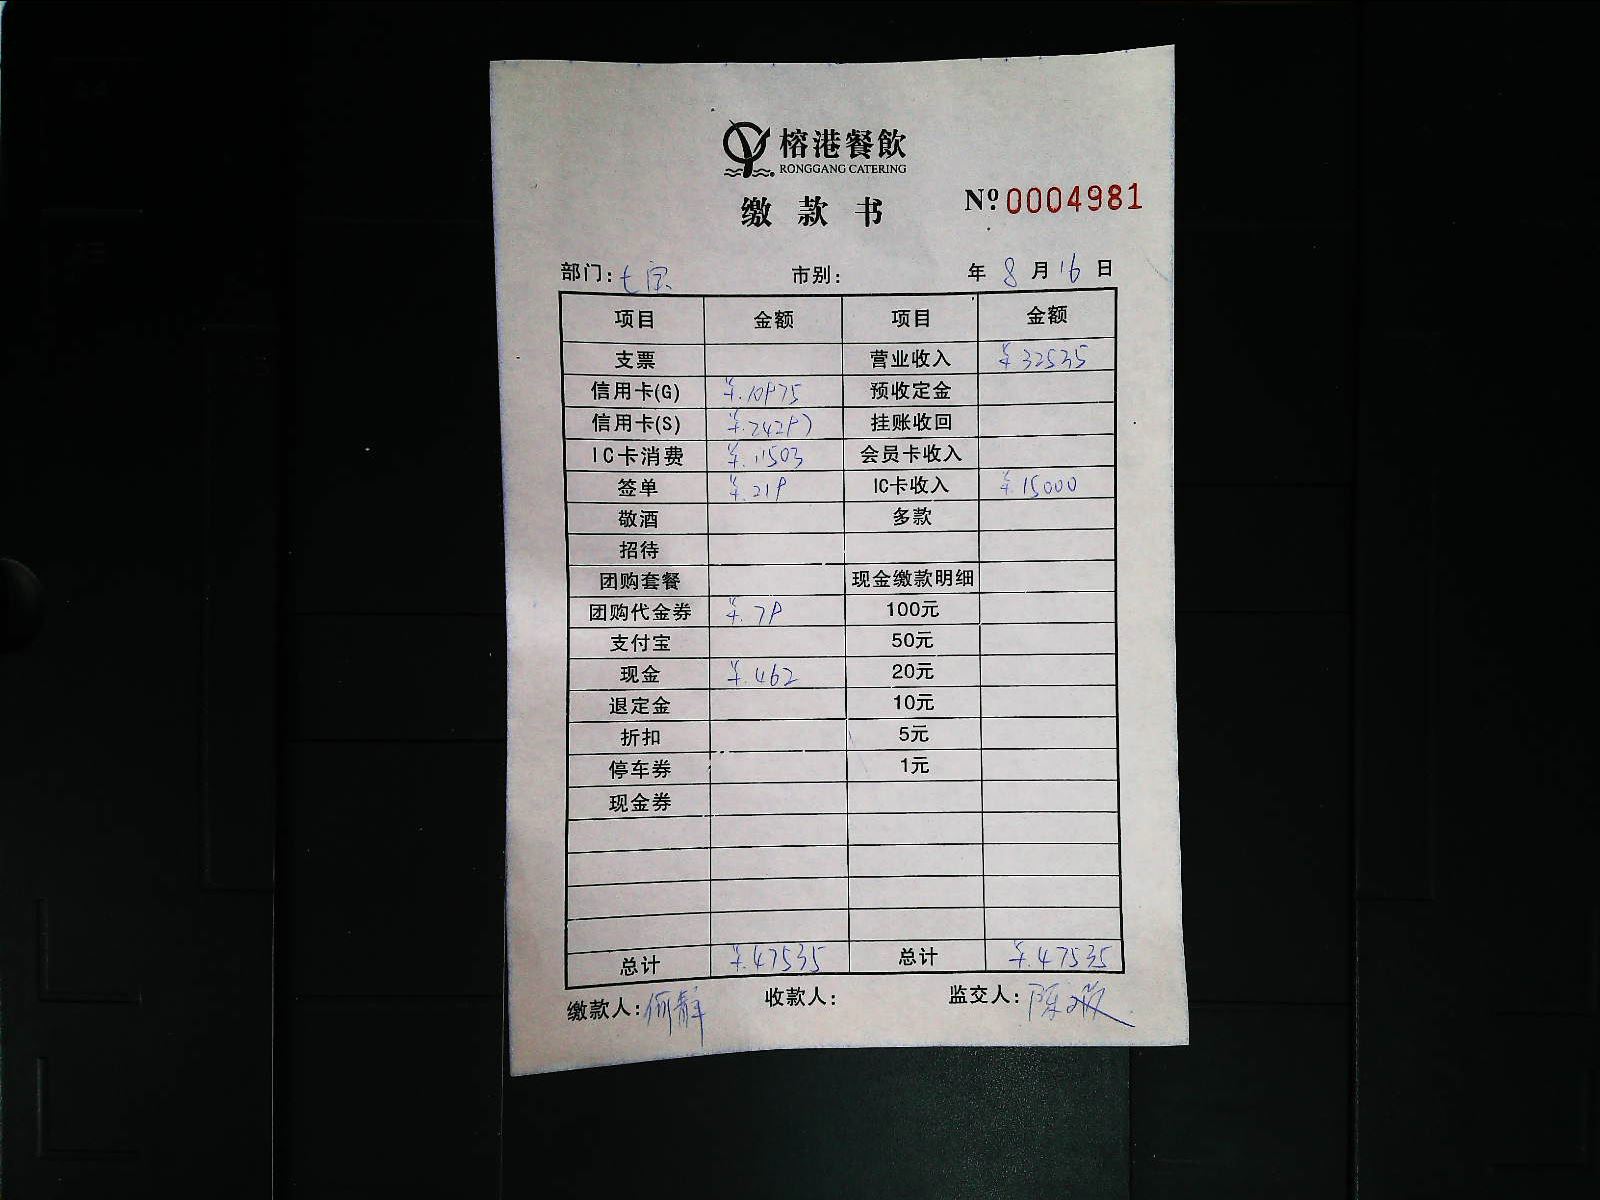 榕港餐飲
RONGGANG CATERING
缴款书 Nº 0004981
部门: 七宝 市别: 年 8 月 16 日
项目 金额 项目 金额
支票 营业收入 ¥32535
信用卡(G) ¥.10975 预收定金
信用卡(S) ¥.24297 挂账收回
IC卡消费 ¥.11503 会员卡收入
签单 ¥.219 IC卡收入 ¥.15000
敬酒 多款
招待
团购套餐 现金缴款明细
团购代金券 ¥.79 100元
支付宝 50元
现金 ¥.462 20元
退定金 10元
折扣 5元
停车券 1元
现金券
总计 ¥.47535 总计 ¥.47535
缴款人: 何静 收款人: 监交人: 陈敏